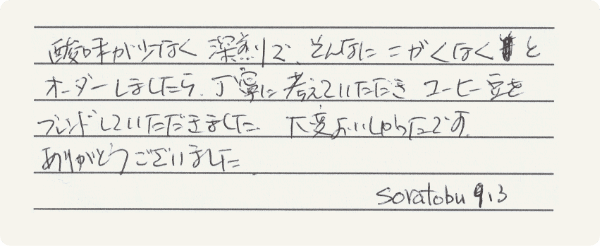 酸味が少なく 深煎りで、そんなに にがくなく と
オーダーしましたら、丁寧に 考えていただき コーヒー豆を
ブレンドしていただきました 大変おいしかったです。
ありがとうございました
soratobu 9.3